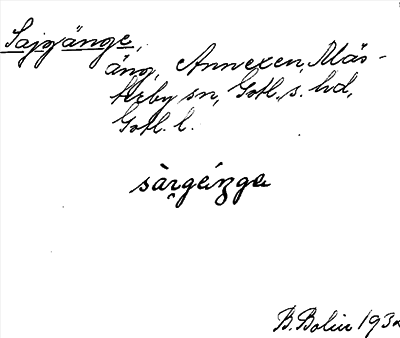 Sajgänge,
äng, Annexen, Mäs-
terby sn, Gotl. s. hd,
Gotl. l.
sàrgénga
B. Bolin 193